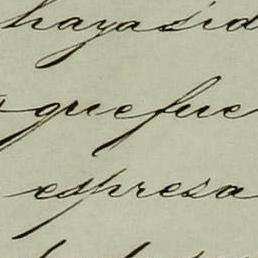 haya sid
que fue
espresa